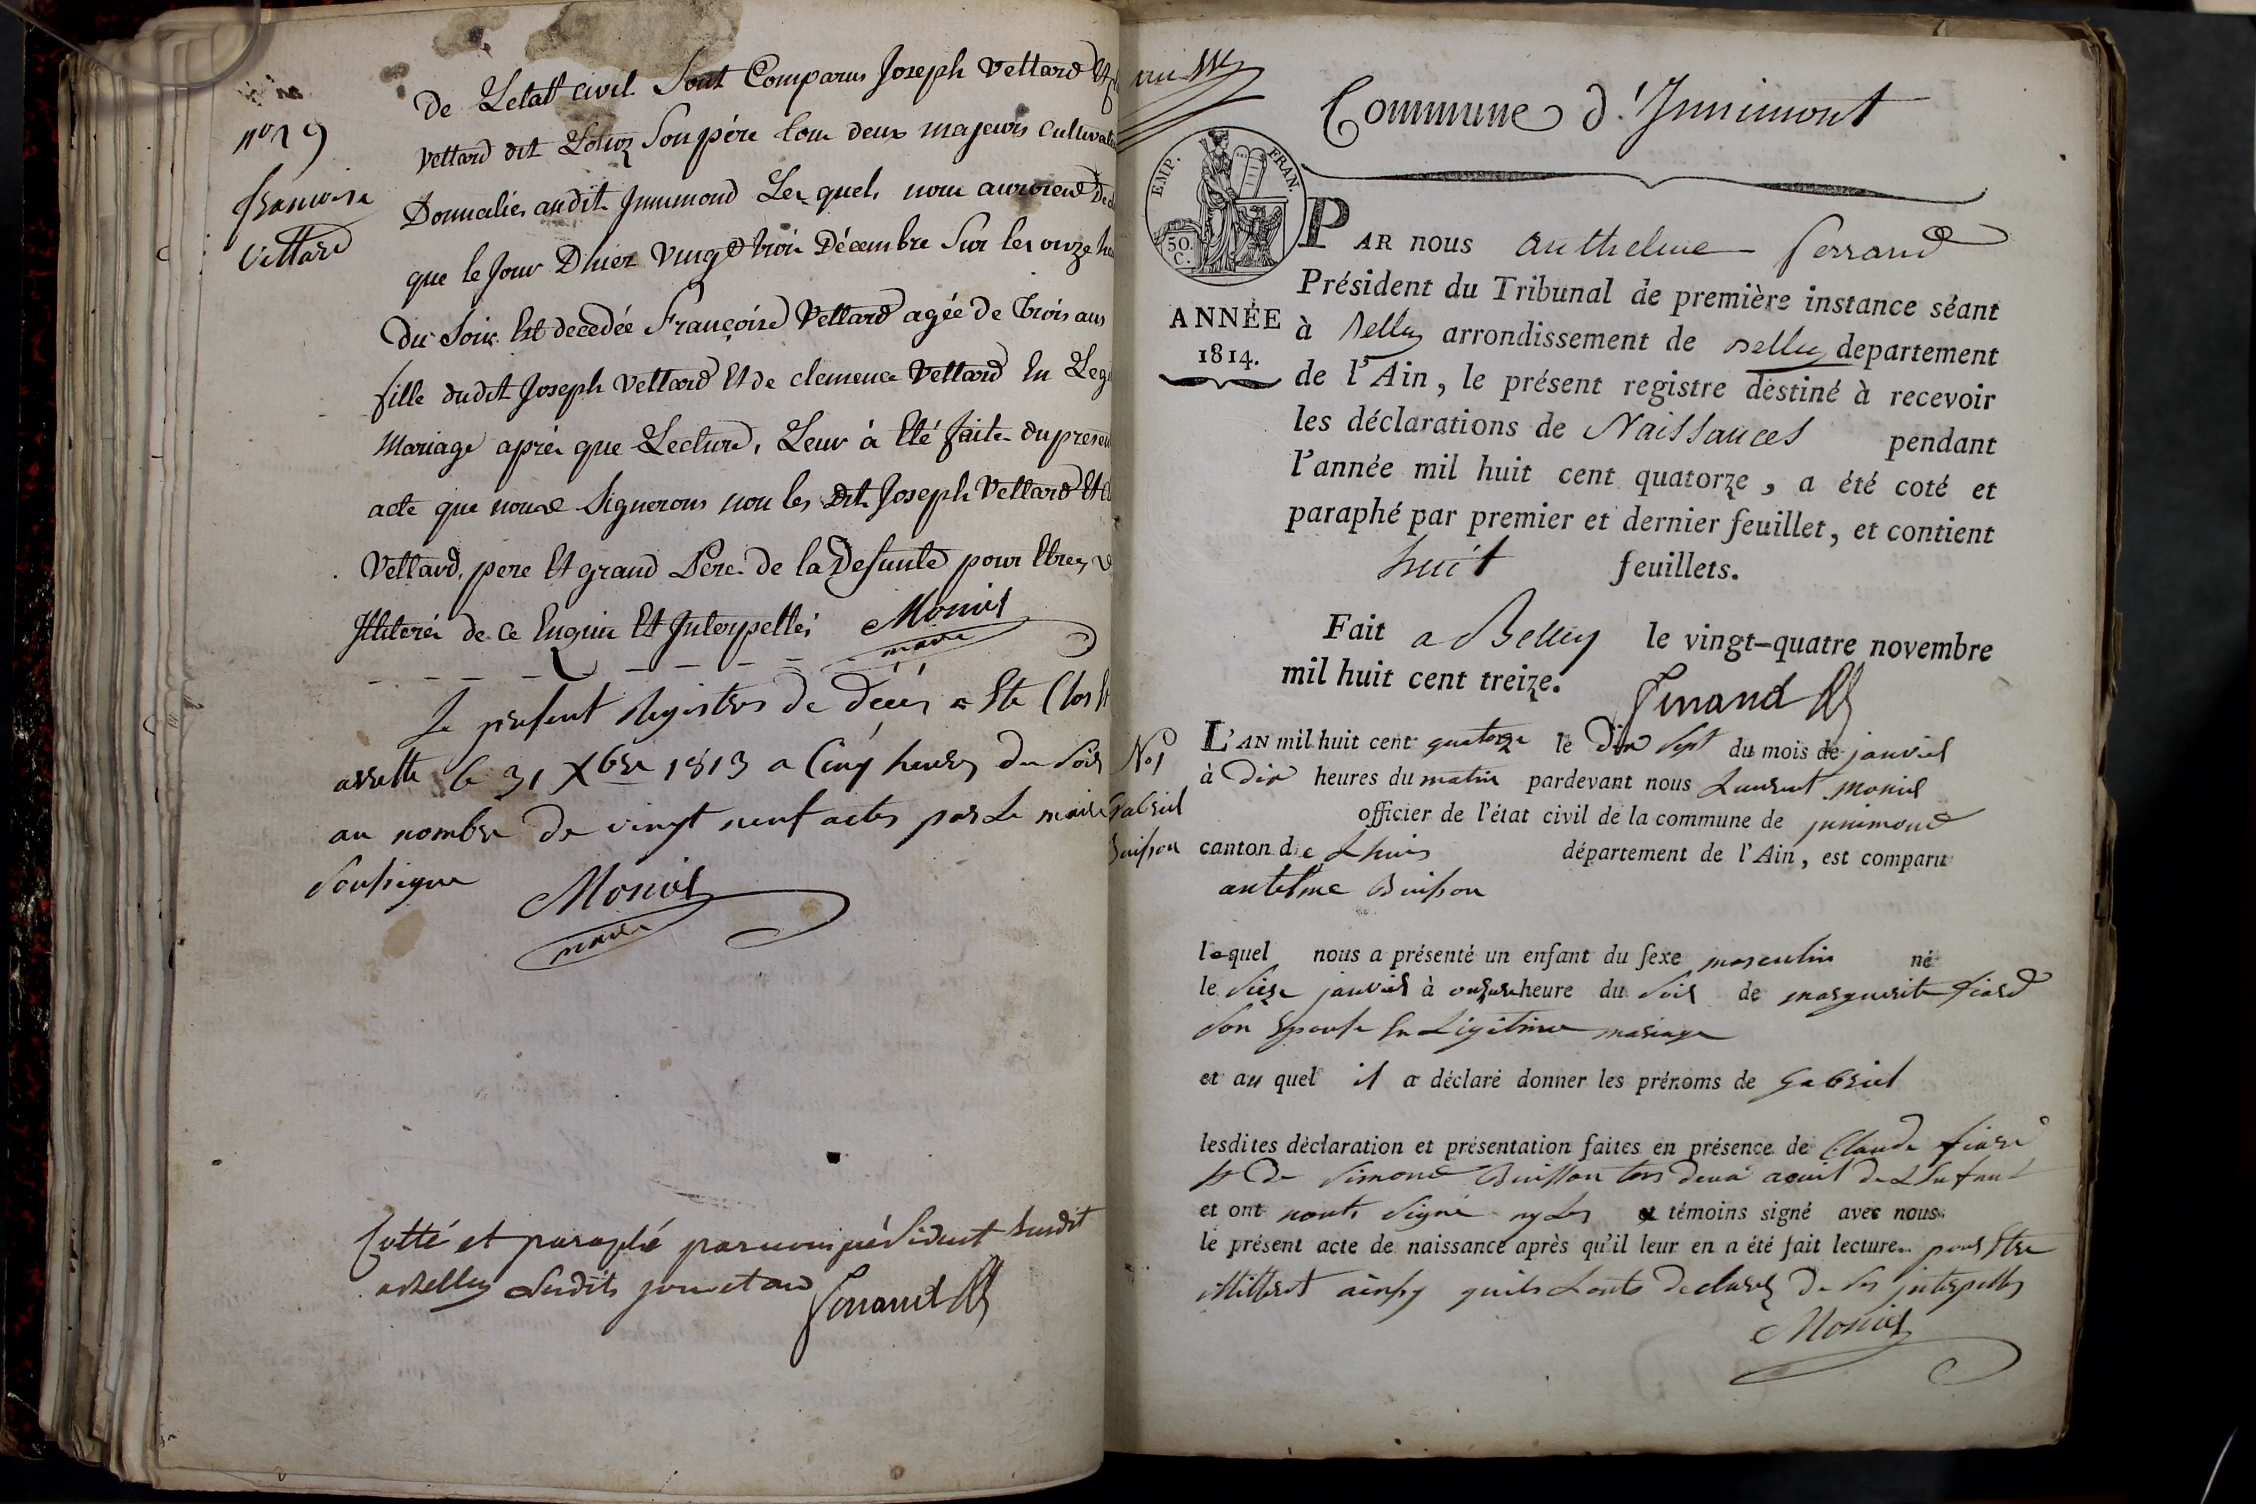 de Letat civil Sont Comparus Joseph Vettard Et
Vettard dit Lolioz Son père tous deux majeurs
Domicilies audit Jnnimond Lesquels nous auroient
que le Jour Dhier Vingt trois Décembre Sur les onze
du Soir Est decedée Françoise Vettard agée de trois ans
fille dudit Joseph Vettard Et de clemence Vettard En
Mariage après que Lecture, Leur à Eté faite du
acte que nous Signerons non les dits Joseph Vettard
Vettard, pere Et grand Pere de la Defunte pour Etre
Jlliterés de ce Enquis Et Jnterpellés
Moniet
maire
n° 29
francoise
Vettard
Le present Registre de Décés a Ete Clos Et
arretté le 31 Xbre 1813 a Cinq heures du Soir
au nombre de vingt neuf actes par Le maire
Soussigné
Moniet
maire
Cotté et paraphé par nous président susdit
a Belley Lesdits jour et an
Ferrand
Commune d'Innimont
EMP. FRAN.
50.
C.
ANNÉE
1814.
PAR nous anthelme ferrand
Président du Tribunal de première instance séant
à Belley arrondissement de Belley departement
de l'Ain, le présent registre destiné à recevoir
les déclarations de Naissances pendant
l'année mil huit cent quatorze, a été coté et
paraphé par premier et dernier feuillet, et contient
huit feuillets.
Fait a Belley le vingt-quatre novembre
mil huit cent treize.
Ferrand
N° 1
Gabriel
Buisson
L'AN mil huit cent quatorze le Dix Sept du mois de janvier
à Dix heures du matin pardevant nous Laurent Moniet
officier de l'état civil de la commune de jnnimond
canton de Lhuis département de l'Ain, est comparu
antelme Buisson
lequel nous a présenté un enfant du sexe masculin né
le Seize janvier à onze heure du Soir de marguerite fiard
Son Epouse En Légitime mariage
et au quel il a déclaré donner les prénoms de Gabriel
lesdites déclaration et présentation faites en présence de Claude fiard
Et De Simond Buisson tous deux de Lenfant
et ont signé ny Les témoins signé avec nous
le présent acte de naissance après qu'il leur en a été fait lecture. pour Etre
jllitéret ainsy quils Lonts declarez De Ses jnterpellés
Moniet